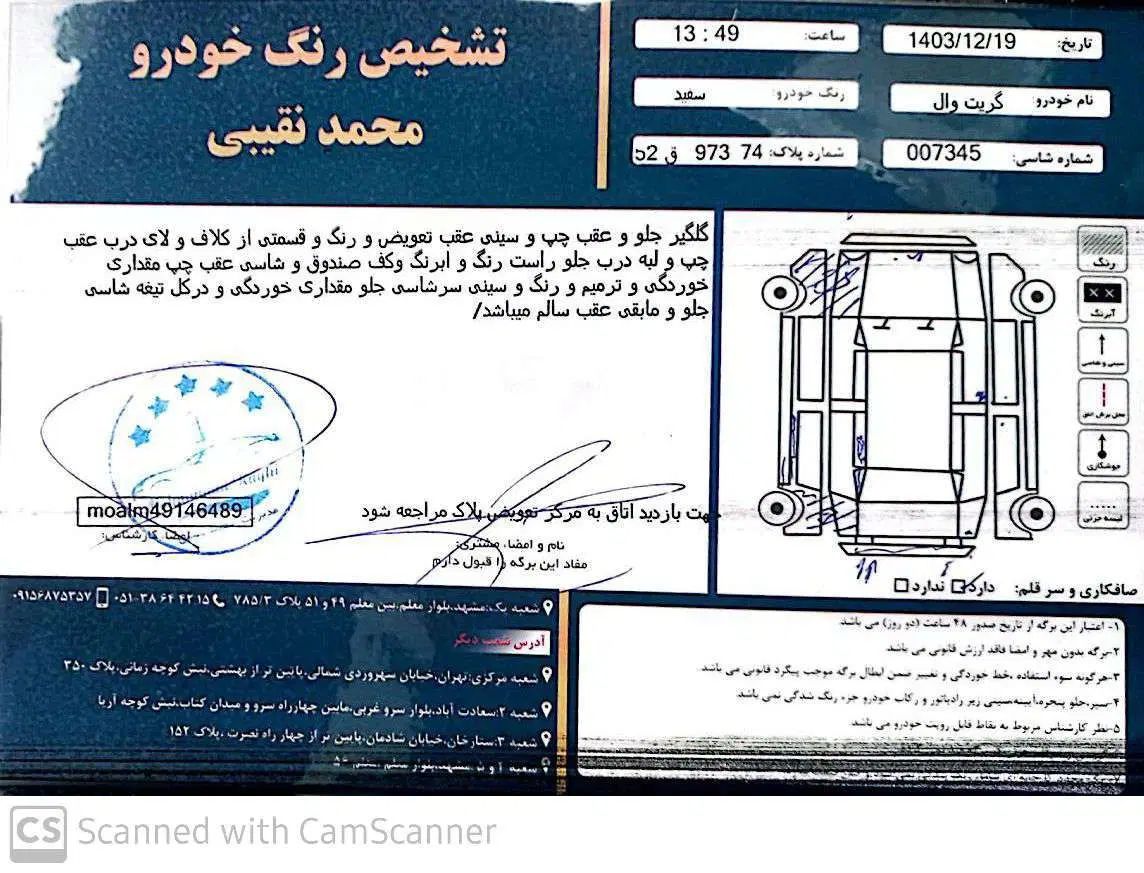 تشخیص رنگ خودرو
محمد نقیبی
تاریخ: 1403/12/19
ساعت: 13 : 49
نام خودرو: گریت وال
رنگ خودرو: سفید
شماره شاسی: 007345
شماره پلاک: 74 973 ق 52
گلگیر جلو و عقب چپ و سینی عقب تعویض و رنگ و قسمتی از کلاف و لای درب عقب
چپ و لبه درب جلو راست رنگ و ابرنگ وکف صندوق و شاسی عقب چپ مقداری
خوردگی و ترمیم و رنگ و سینی سرشاسی جلو مقداری خوردگی و درکل تیغه شاسی
جلو و مابقی عقب سالم میباشد/
رنگ
آبرنگ
سینی و شاسی
محل برش افق
جوشکاری
لیسه جزئی
moalm49146489
امضا کارشناس:
جهت بازدید اتاق به مرکز تعویض پلاک مراجعه شود
نام و امضا، مشتری:
مفاد این برگه را قبول دارم
صافکاری و سر قلم: دارد ندارد
شعبه یک:مشهد،بلوار معلم،بین معلم ۴۹ و ۵۱ پلاک ۷۸۵/۳ ۰۵۱-۳۸ ۶۴ ۴۲ ۱۵ ۰۹۱۵۶۸۷۵۳۵۷
آدرس شعب دیگر
شعبه مرکزی:تهران،خیابان سهروردی شمالی،پایین تر از بهشتی،نبش کوچه زمانی،پلاک ۳۵۰
شعبه ۲:سعادت آباد،بلوار سرو غربی،مابین چهارراه سرو و میدان کتاب،نبش کوچه آریا
شعبه ۳:ستارخان،خیابان شادمان،پایین تر از چهار راه نصرت ،پلاک ۱۵۲
۱- اعتبار این برگه از تاریخ صدور ۴۸ ساعت (دو روز) می باشد
۲-برگه بدون مهر و امضا فاقد ارزش قانونی می باشد
۳-هرگونه سوء استفاده ،خط خوردگی و تغییر ضمن ابطال برگه موجب پیگرد قانونی می باشد.
۴-سپر،جلو پنجره،آینه،سینی زیر رادیاتور و رکاب خودرو جزء رنگ شدگی نمی باشد
۵-نظر کارشناس مربوط به نقاط قابل رویت خودرو می باشد
CS Scanned with CamScanner